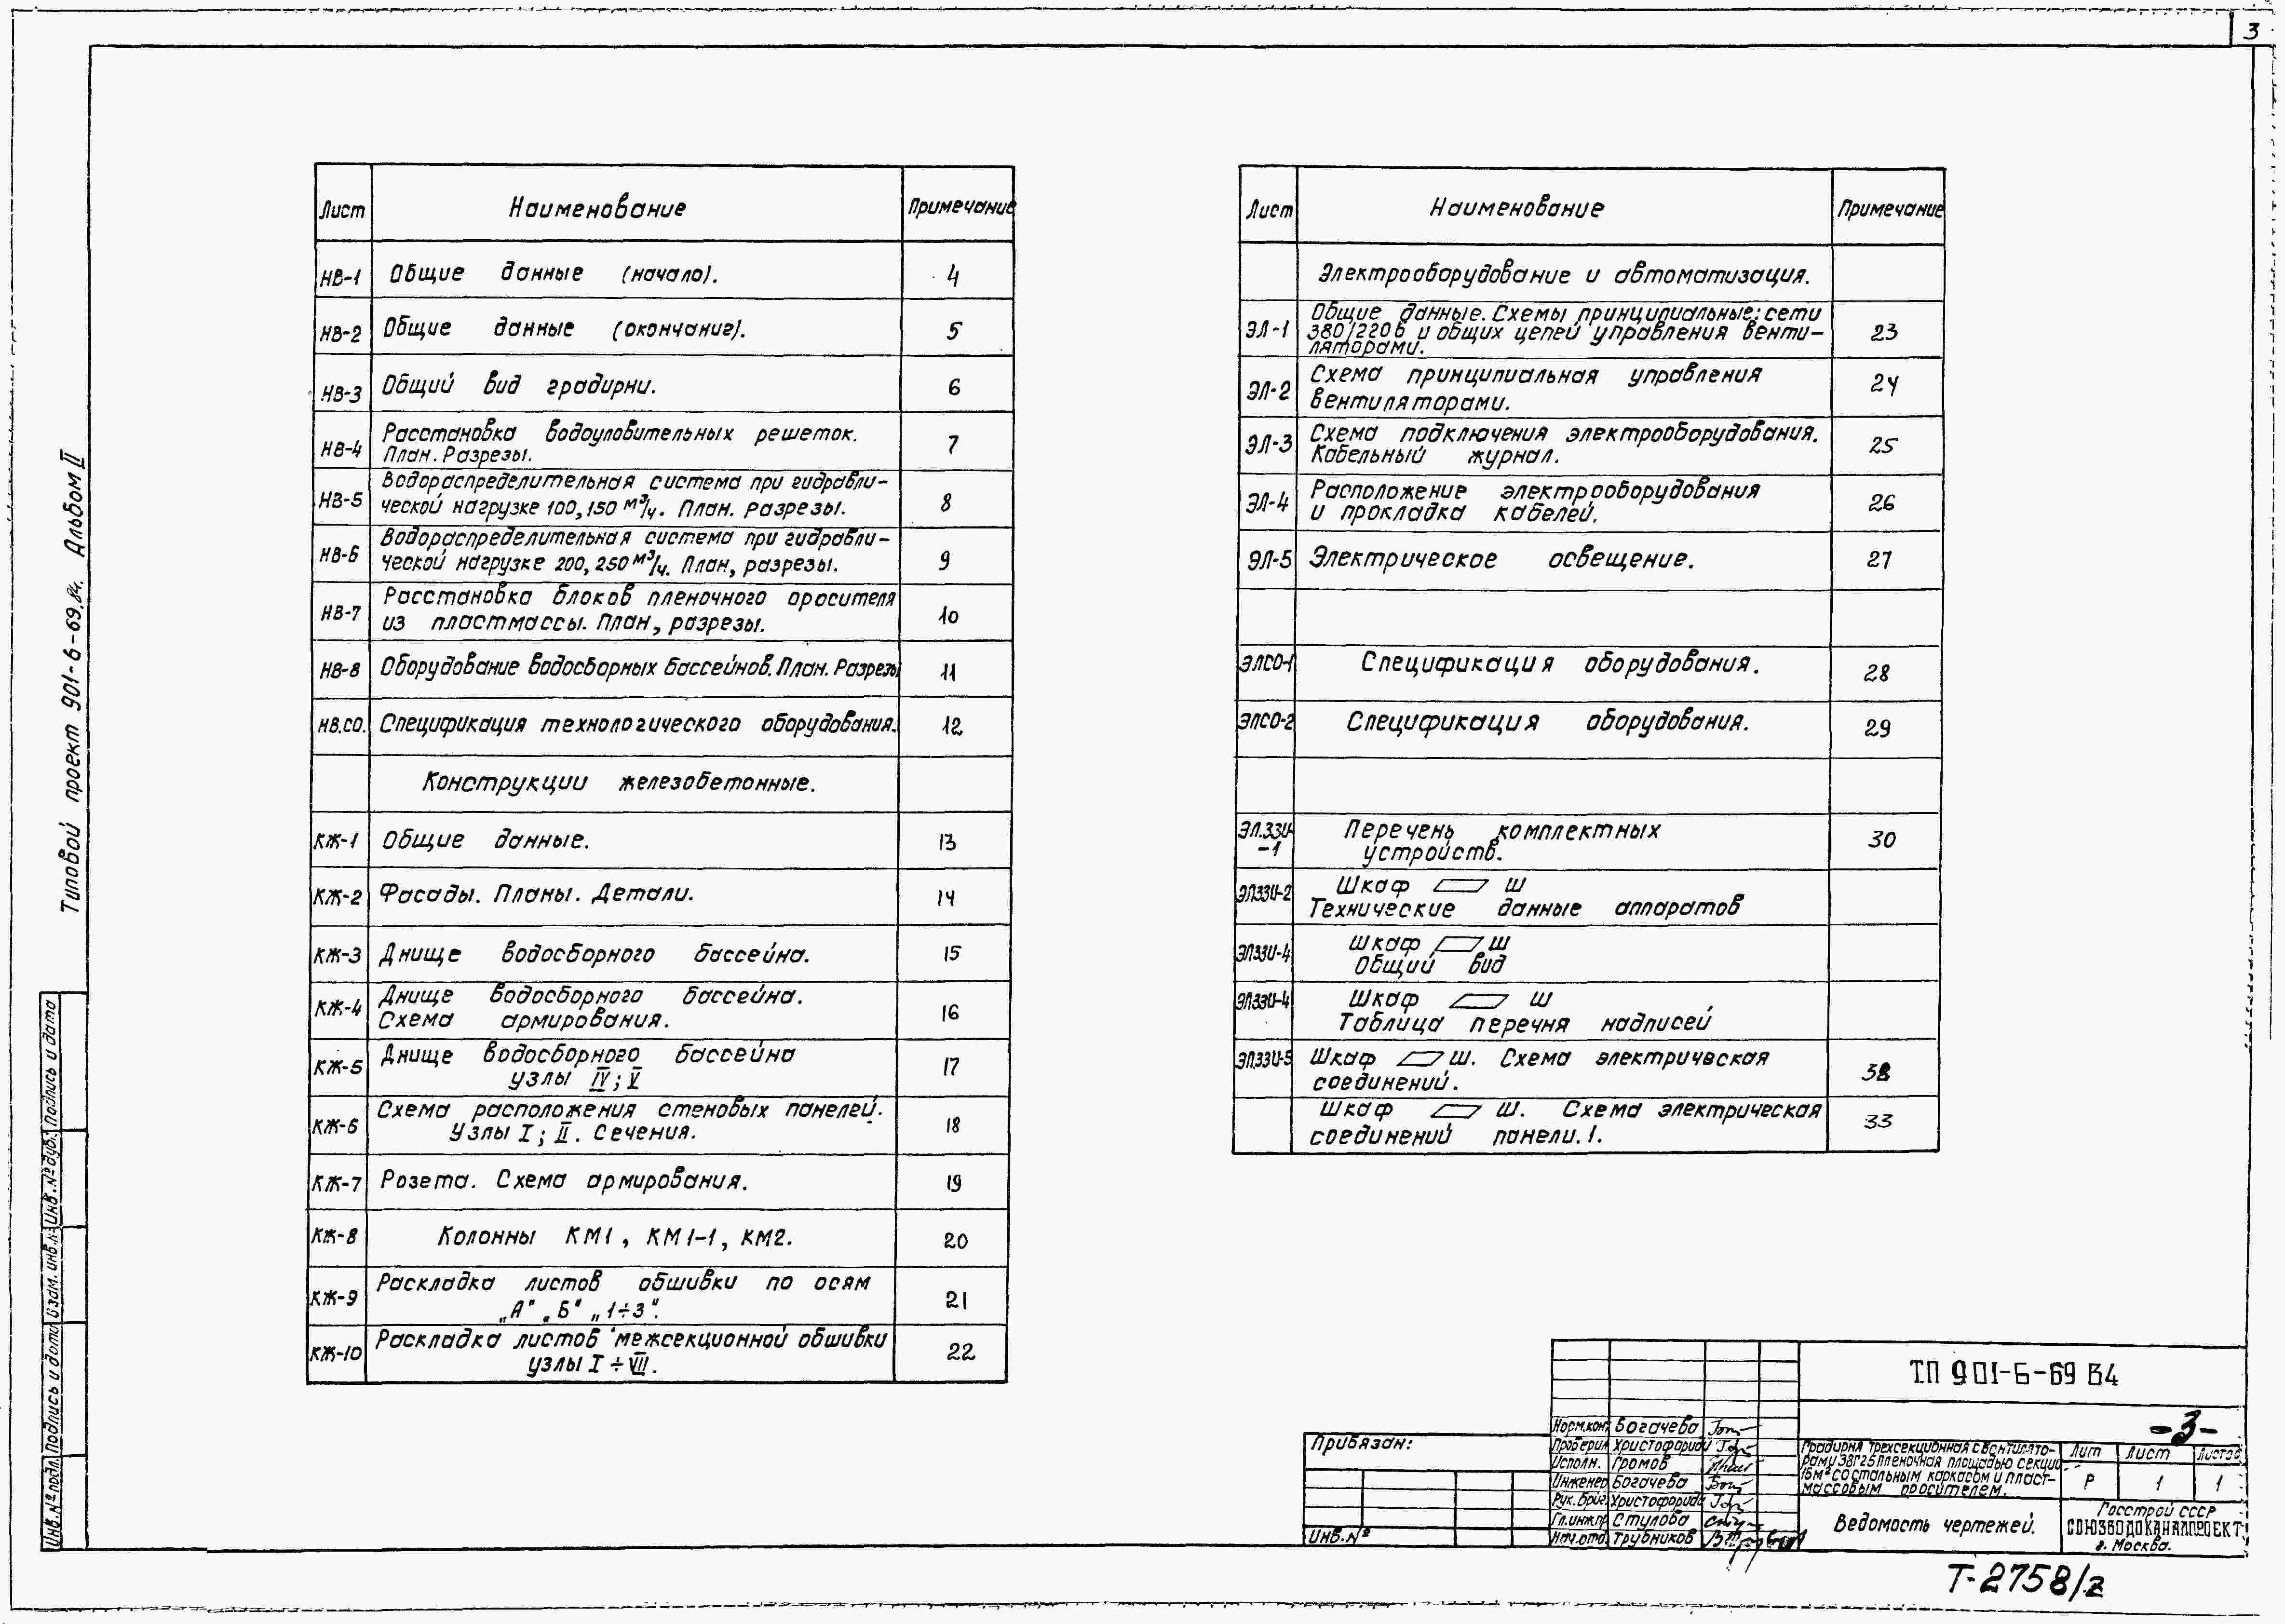 3
Типовой проект 901-6-69.84. Альбом II
Лист Наименование Примечание
НВ-1 Общие данные (начало). 4
НВ-2 Общие данные (окончание). 5
НВ-3 Общий вид градирни. 6
НВ-4 Расстановка водоуловительных решеток. 7
План. Разрезы.
Водораспределительная система при гидравли-
НВ-5 ческой нагрузке 100, 150 м³/ч. План. разрезы. 8
Водораспределительная система при гидравли-
НВ-6 ческой нагрузке 200, 250 м³/ч. План, разрезы. 9
Расстановка блоков пленочного оросителя
НВ-7 из пластмассы. План, разрезы. 10
НВ-8 Оборудование водосборных бассейнов. План. Разрезы 11
НВ.СО. Спецификация технологического оборудования. 12
Конструкции железобетонные.
КЖ-1 Общие данные. 13
КЖ-2 Фасады. Планы. Детали. 14
КЖ-3 Днище водосборного бассейна. 15
КЖ-4 Днище водосборного бассейна. 16
Схема армирования.
КЖ-5 Днище водосборного бассейна 17
узлы IV; V
КЖ-6 Схема расположения стеновых панелей. 18
Узлы I; II. Сечения.
КЖ-7 Розета. Схема армирования. 19
КЖ-8 Колонны КМ1, КМ1-1, КМ2. 20
КЖ-9 Раскладка листов обшивки по осям 21
„А" „Б" „1÷3".
КЖ-10 Раскладка листов межсекционной обшивки 22
узлы I ÷ VII.
Лист Наименование Примечание
Электрооборудование и автоматизация.
Общие данные. Схемы принципиальные: сети
ЭЛ-1 380/220в и общих цепей управления венти- 23
ляторами.
ЭЛ-2 Схема принципиальная управления 24
вентиляторами.
ЭЛ-3 Схема подключения электрооборудования. 25
Кабельный журнал.
ЭЛ-4 Расположение электрооборудования 26
и прокладка кабелей.
ЭЛ-5 Электрическое освещение. 27
ЭЛСО-1 Спецификация оборудования. 28
ЭЛСО-2 Спецификация оборудования. 29
ЭЛ.ЗЗИ Перечень комплектных 30
-1 устройств.
ЭЛЗЗИ-2 Шкаф Ш
Технические данные аппаратов
ЭЛЗЗИ-4 Шкаф Ш
Общий вид
ЭЛЗЗИ-4 Шкаф Ш
Таблица перечня надписей
ЭЛ.ЗЗИ-5 Шкаф Ш. Схема электрическая
соединений.
Шкаф Ш. Схема электрическая 33
соединений панели. 1.
Инв.№ подл. Подпись и дата Взам. инв.№ Инв.№ дуб. Подпись и дата
Привязан:
Инв.№
Норм.кон. Богачева
Проверил Христофориди
Исполн. Громов
Инженер Богачева
Рук. бриг. Христофориди
Гл.инж.пр Стулова
Нач.отд. Трубников
ТП 901-6-69 84
-3-
Градирня трехсекционная с вентилято-
рами 3ВГ25 пленочная площадью секции
16м² со стальным каркасом и пласт-
массовым оросителем.
Лит Лист Листов
Р 1 1
Ведомость чертежей.
Госстрой СССР
СОЮЗВОДОКАНАЛПРОЕКТ
г. Москва.
Т-2758/2